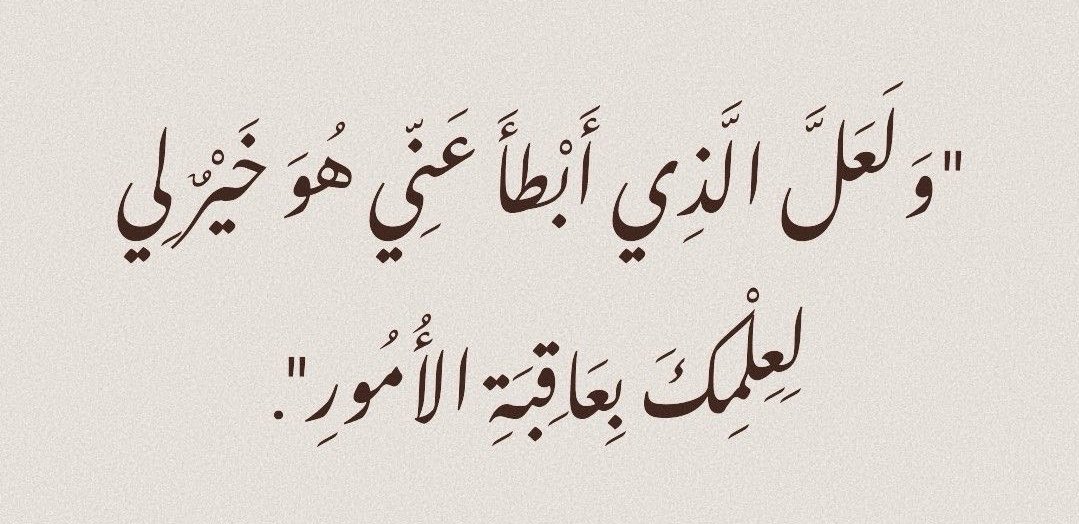 "وَ لَعَلَّ الَّذِي أَبْطأَ عَنّي هُوَ خَيْرٌ لِي
لِعِلْمِكَ بِعَاقِبَةِ الأُمُورِ".